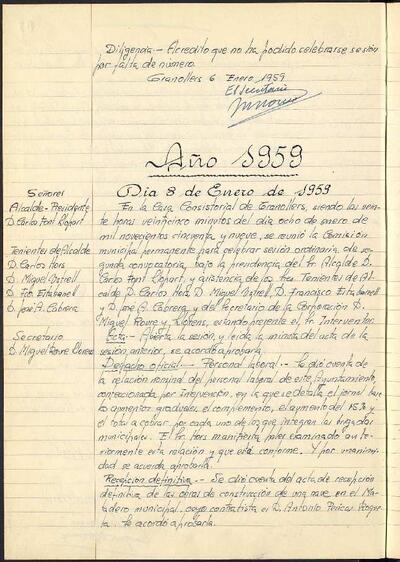 Diligencia.- Acredito que no ha podido celebrarse sesión
por falta de número.
Granollers 6 Enero 1959
El secretario
Año 1959
Señores
Alcalde-Presidente
D. Carlos Font Llopart
Tenientes de Alcalde
D. Carlos Hors
D. Miguel Distrell
D. Fco Estabanell
D. José A. Cabrera
Secretario
D. Miguel Roure Llorens
Dia 8 de Enero de 1959
En la Casa Consistorial de Granollers, siendo las vein-
te horas veinticinco minutos del dia ocho de enero de
mil novecientos cincuenta y nueve, se reunió la Comisión
municipal permanente para celebrar sesión ordinaria, de se-
gunda convocatoria, bajo la presidencia del Sr. Alcalde D.
Carlos Font Llopart, y asistencia de los tres Tenientes de Al-
calde D. Carlos Hors, D. Miguel Distrell, D. Francisco Estabanell
y D. José A. Cabrera, y del Secretario de la Corporación D.
Miguel Roure y Llorens, estando presente el Sr. Interventor.
Acta.- Abierta la sesión, y leida la minuta del acta de la
sesión anterior, se acordó aprobarla.
Despacho oficial.- Personal laboral.- Se dió cuenta de
la relación nominal del personal laboral de este Ayuntamiento,
confeccionada por Intervención, en la que se detalla el jornal base
los aumentos graduales, el complemento, el aumento del 15% y
el total a cobrar por cada uno de los que integran las brigadas
municipales. El Sr. Hors manifiesta haber examinado an te-
riormente esta relación y que está conforme. Y por unanimi-
dad se acuerda aprobarla.
Recepción definitiva.- Se dió cuenta del acta de recepción
definitiva de las obras de construcción de una nave en el Ma-
tadero municipal, cuyo contratista es D. Antonio Pericas
Se acordó aprobarla.